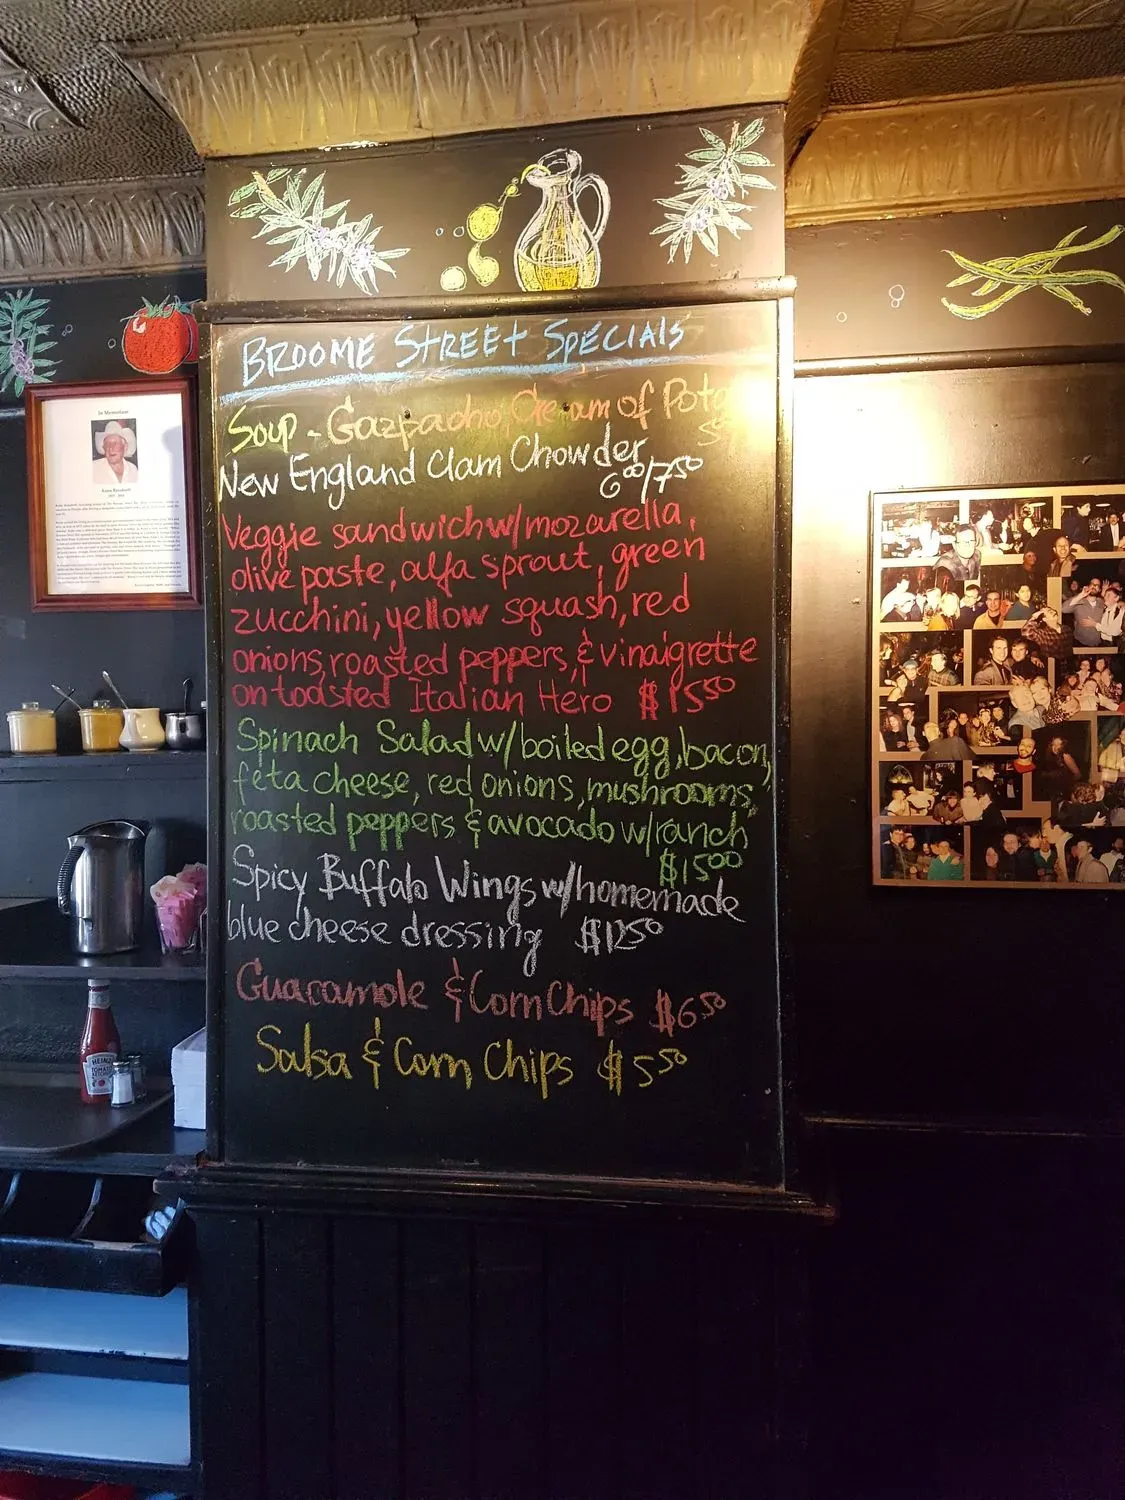 BROOME STREET SPECIALS
Soup - Gazpacho, Cream of
New England Clam Chowder
6⁰⁰/7⁵⁰
Veggie sandwich w/mozarella,
olive paste, alfa sprout, green
zucchini, yellow squash, red
onions, roasted peppers, & vinaigrette
on toasted Italian Hero $15⁵⁰
Spinach Salad w/boiled egg, bacon,
feta cheese, red onions, mushrooms,
roasted peppers & avocado w/ranch
$15⁰⁰
Spicy Buffalo Wings w/homemade
blue cheese dressing $12⁵⁰
Guacamole & Corn Chips $6⁵⁰
Salsa & Corn Chips $5⁵⁰
In Memoriam
HEINZ
TOMATO
KETCHUP